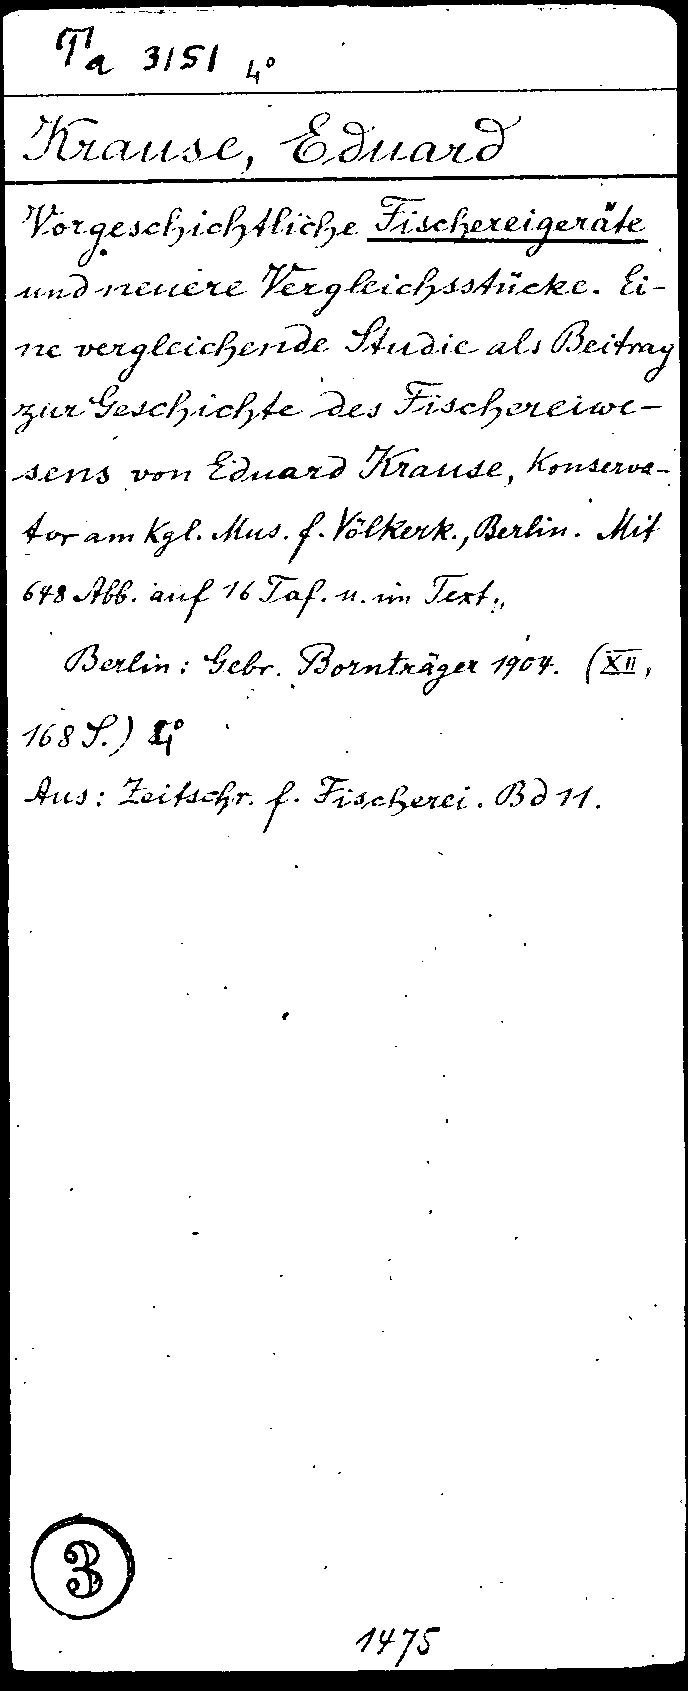 Ta 3151 4°
Krause, Eduard
Vorgeschichtliche Fischereigeräte
und neuere Vergleichsstücke. Ei-
ne vergleichende Studie als Beitrag
zur Geschichte des Fischereiwe-
sens von Eduard Krause, Konserva-
tor am Kgl. Mus. f. Völkerk., Berlin. Mit
648 Abb. auf 16 Taf. u. im Text.
Berlin: Gebr. Bornträger 1904. (XII,
168 S.) 4°
Aus: Zeitschr. f. Fischerei. Bd 11.
3
1475